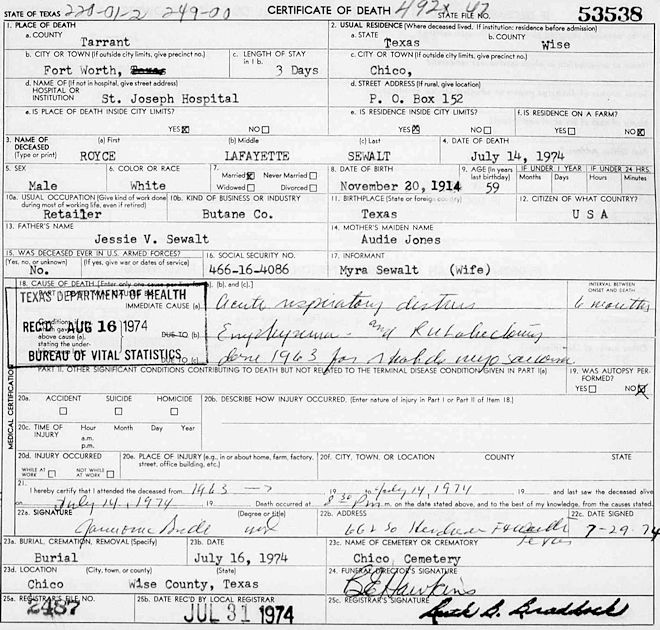 STATE OF TEXAS 220-01-2 249-00 CERTIFICATE OF DEATH 492X 47 STATE FILE NO. 53538
1. PLACE OF DEATH 2. USUAL RESIDENCE (Where deceased lived. If institution: residence before admission)
a. COUNTY a. STATE b. COUNTY
Tarrant Texas Wise
b. CITY OR TOWN (If outside city limits, give precinct no.) c. LENGTH OF STAY in 1 b. c. CITY OR TOWN (If outside city limits, give precinct no.)
Fort Worth, Texas 3 Days Chico,
d. NAME OF (If not in hospital, give street address) HOSPITAL OR INSTITUTION d. STREET ADDRESS (If rural, give location)
St. Joseph Hospital P. O. Box 152
e. IS PLACE OF DEATH INSIDE CITY LIMITS? e. IS RESIDENCE INSIDE CITY LIMITS? f. IS RESIDENCE ON A FARM?
YES X NO YES X NO YES NO X
3. NAME OF DECEASED (Type or print) (a) First (b) Middle (c) Last 4. DATE OF DEATH
ROYCE LAFAYETTE SEWALT July 14, 1974
5. SEX 6. COLOR OR RACE 7. Married X Never Married Widowed Divorced 8. DATE OF BIRTH 9. AGE (In years last birthday) IF UNDER 1 YEAR Months Days IF UNDER 24 HRS. Hours Minutes
Male White November 20, 1914 59
10a. USUAL OCCUPATION (Give kind of work done during most of working life, even if retired) 10b. KIND OF BUSINESS OR INDUSTRY 11. BIRTHPLACE (State or foreign country) 12. CITIZEN OF WHAT COUNTRY?
Retailer Butane Co. Texas U S A
13. FATHER'S NAME 14. MOTHER'S MAIDEN NAME
Jessie V. Sewalt Audie Jones
15. WAS DECEASED EVER IN U.S. ARMED FORCES? 16. SOCIAL SECURITY NO. 17. INFORMANT
(Yes, no, or unknown) (If yes, give war or dates of service)
No. 466-16-4086 Myra Sewalt (Wife)
18. CAUSE OF DEATH (b), and (c).] INTERVAL BETWEEN ONSET AND DEATH
TEXAS DEPARTMENT OF HEALTH
IMMEDIATE CAUSE (a) Acute respiratory distress 6 months
REC'D AUG 16 1974
DUE TO (b) Emphysema and Rt Lobectomy
BUREAU OF VITAL STATISTICS
DUE TO (c) done 1963 for
PART II. OTHER SIGNIFICANT CONDITIONS CONTRIBUTING TO DEATH BUT NOT RELATED TO THE TERMINAL DISEASE CONDITION GIVEN IN PART I(a) 19. WAS AUTOPSY PERFORMED?
YES NO X
MEDICAL CERTIFICATION
20a. ACCIDENT SUICIDE HOMICIDE 20b. DESCRIBE HOW INJURY OCCURRED. (Enter nature of injury in Part I or Part II of Item 18.)
20c. TIME OF INJURY Hour a.m. p.m. Month Day Year
20d. INJURY OCCURRED WHILE AT WORK NOT WHILE AT WORK 20e. PLACE OF INJURY (e.g., in or about home, farm, factory, street, office building, etc.) 20f. CITY, TOWN, OR LOCATION COUNTY STATE
21. I hereby certify that I attended the deceased from 1963 19 to July 14, 1974 19 and last saw the deceased alive
on July 14, 1974 19 Death occurred at 8:30 P.m. on the date stated above, and to the best of my knowledge, from the causes stated.
22a. SIGNATURE (Degree or title) 22b. ADDRESS 22c. DATE SIGNED
7-29-74
Texas
23a. BURIAL, CREMATION, REMOVAL (Specify) 23b. DATE 23c. NAME OF CEMETERY OR CREMATORY
Burial July 16, 1974 Chico Cemetery
23d. LOCATION (City, town, or county) (State) 24. FUNERAL DIRECTOR'S SIGNATURE
Chico Wise County, Texas B E Hawkins
25a. REGISTRAR'S FILE NO. 25b. DATE REC'D BY LOCAL REGISTRAR 25c. REGISTRAR'S SIGNATURE
2487 JUL 31 1974 Ruth G. Braddock